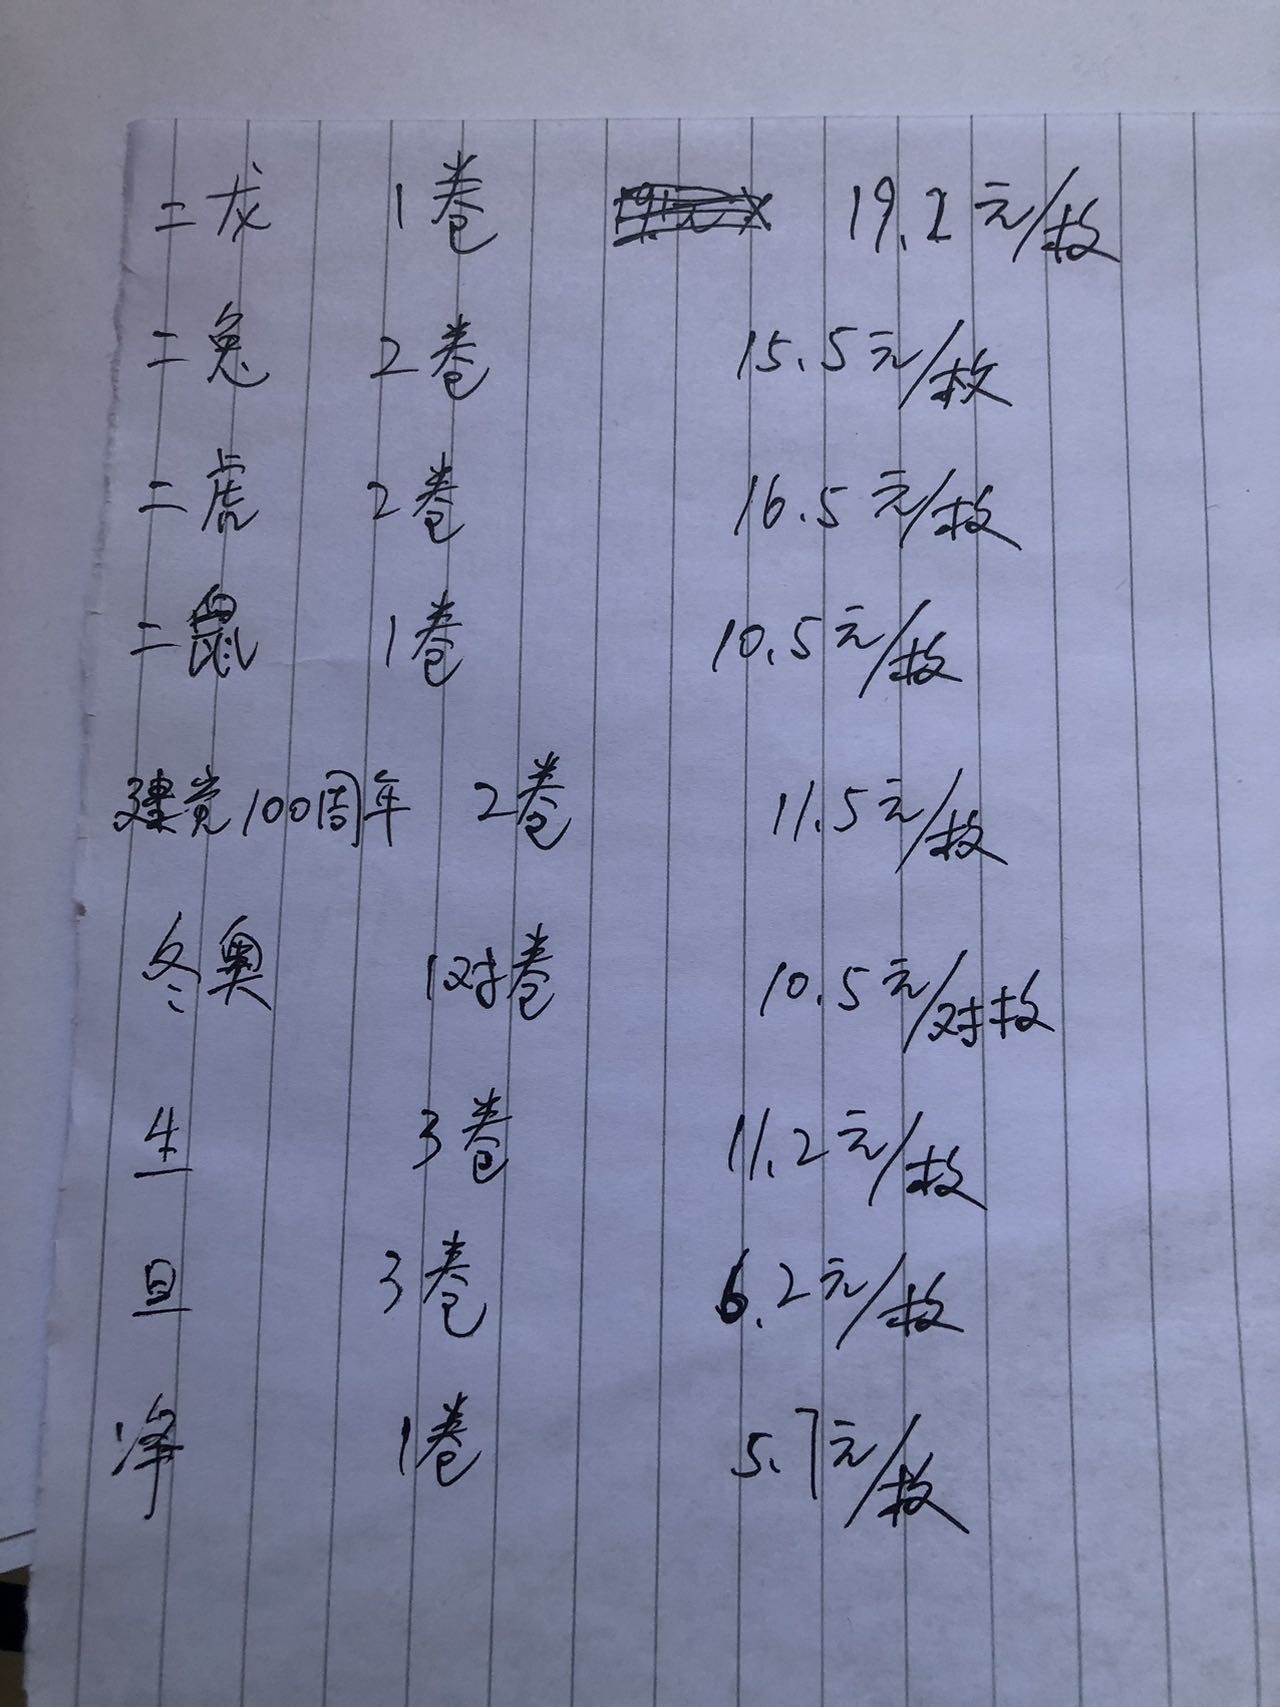 二龙 1卷 19.2元/枚
二兔 2卷 15.5元/枚
二虎 2卷 16.5元/枚
二鼠 1卷 10.5元/枚
建党100周年 2卷 11.5元/枚
冬奥 1对卷 10.5元/对枚
生 3卷 11.2元/枚
旦 3卷 6.2元/枚
净 1卷 5.7元/枚